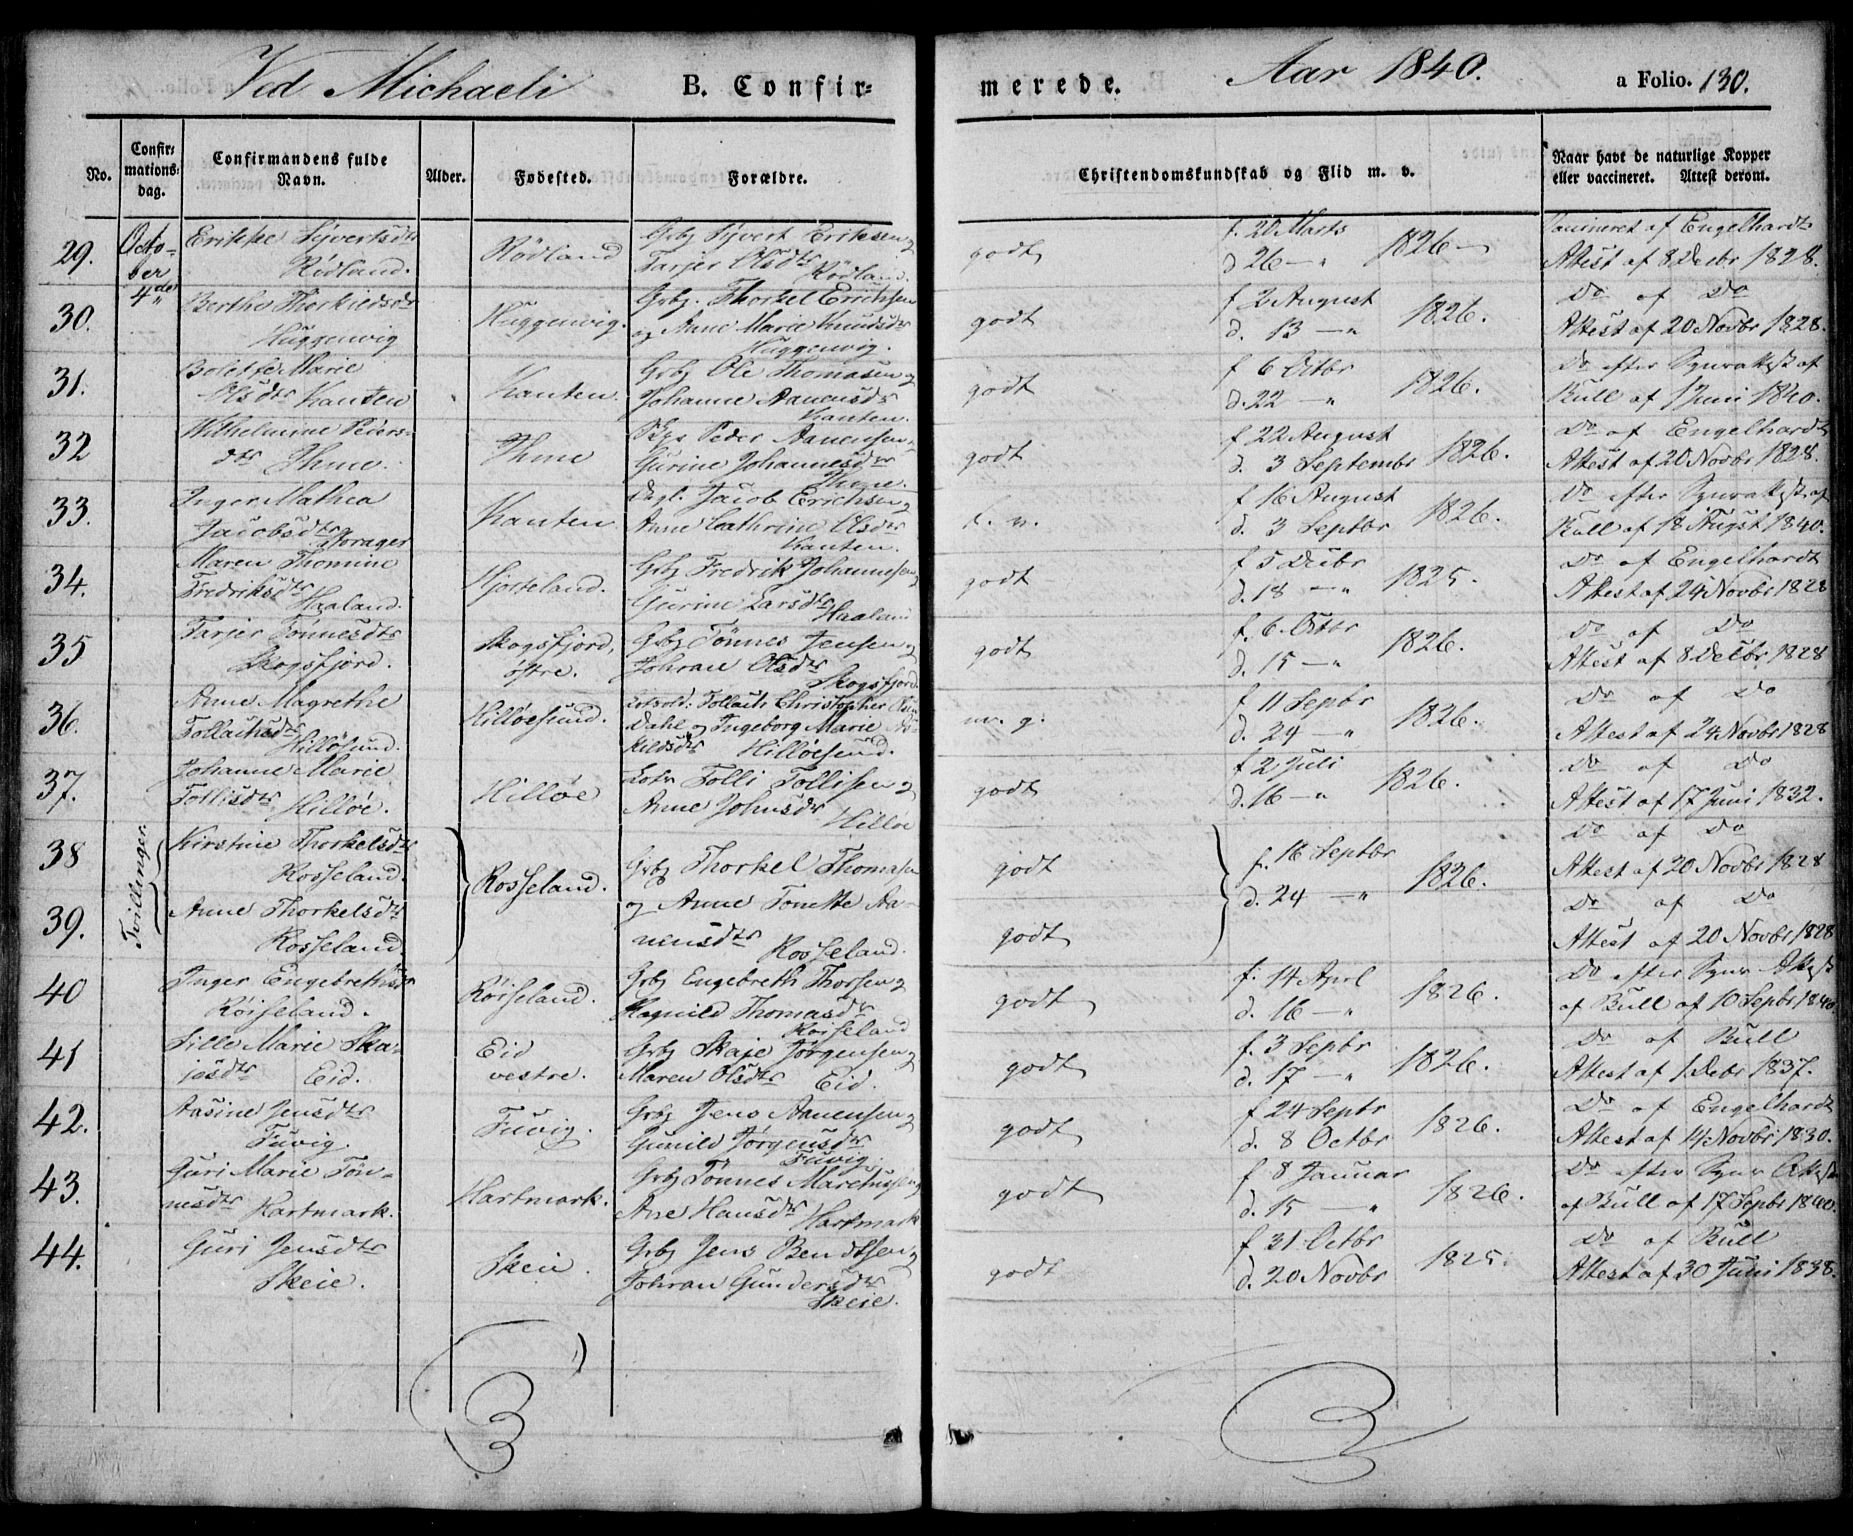 Ved Michaeli B. Confir=
merede. Aar 1840. a Folio. 130.
No.
Confir=
mations=
dag.
Confirmandens fulde
Navn.
Alder.
Fødested.
Forældre.
Christendomskundskab og Flid m. v.
Naar havt de naturlige Kopper
eller vaccineret. Attest derom.
29.
Octo-
ber
4de
Erikke Syvertsdtr
Rödland.
Rödland
Grbj Syvert Eriksen og
Tarjer Olsdtr
Rödland.
godt
f. 20 Marts
d 26 — "
1826
Vaccineret af Engelhardt
Attest af 8 Decbr 1828.
30.
Berthe Thorkildsdtr
Huggenvig
Huggenvig.
Grbj. Thorkel Erichsen
og Anne Marie Knudsdtr
Huggenvig.
godt
f 2 August
d. 13 — "
1826.
Do af Do
Attest af 20 Novbr 1828.
31.
Bolette Marie
Olsdtr Kanten
Kanten.
Grbj Ole Thomasen og
Johanne Aanensdtr
Kanten.
godt
f 6 Octbr
d. 22 — "
1826.
Do efter Synsattest af
Bull af 1 Juni 1840.
32
Wilhelmine Peders-
dtr Thme.
Thme
Peder Aanensen
Gurine Johannesdtr
Thme.
godt
f 22 August
d. 3 Septembr
1826.
Do af Engelhardt
Attest af 20 Novbr 1828.
33.
Inger Mathea
Jacobsdtr
Kanten
Dagl. Jacob Erichsen og
Anne Cathrine Olsdtr
Kanten.
f 16 August
d. 3 Septbr
1826.
Do efter Synsattest af
Bull af 18 August 1840.
34.
Maren Thomine
Fredriksdtr
Haaland.
Hjorteland.
Grbj Fredrik Johannesen og
Gurine Larsdtr
Haaland
godt
f 5 Decbr
d. 18 — "
1825.
Do af Engelhardt
Attest af 24 Novbr 1828
35
Tarjer Tönnesdtr
Skogsfjord.
Skogsfjord,
östre.
Grbj Tönnes Jensen og
Johran Olsdtr
Skogsfjord.
godt
f. 6. Octbr
d. 15 — "
1826.
Do af Do
Attest af 8 Decbr 1828
36.
Anne Magrethe
Tollachsdtr
Hillösund.
Hillöesund.
Tollach Christopher
Dahl og Ingeborg Marie
kildsdtr Hillöesund.
m. g.
f 11 Septbr
d. 24 — "
1826.
Do af Do
Attest af 24 Novbr 1828
37.
Johanne Marie
Tollisdtr Hillöe.
Hillöe
Lots Tolli Tollisen og
Anne Johnsdtr
Hillöe
godt
f 2 Juli
d. 16 — "
1826.
Do af Do
Attest af 17 Juni 1832.
Tvillinger.
38
Kirstine Thorkelsdtr
Rosseland.
Rosseland.
Grbj Thorkel Thomasen
og Anne Tonette Aa-
nensdtr
Rosseland.
godt
f. 16 Septbr
d. 24 — "
1826.
Do af Do
Attest af 20 Novbr 1828
39.
Anne Thorkelsdtr
Rosseland
godt
Do af Do
Attest af 20 Novbr 1828
40
Inger Engebrethsdtr
Röiseland.
Röiseland.
Grbj Engebreth Thorsen og
Ragnild Thomasdtr
Röiseland
godt
f. 14 April
d. 16 — "
1826.
Do efter Syns Attest
af Bull af 10 Septbr 1840
41
Sille Marie Ska-
jesdtr Eid.
Eid
vestre.
Grbj Skaje Jørgensen og
Maren Olsdtr Eid.
godt
f. 3 Septbr
d. 17 — "
1826.
Do af Bull
Attest af 1 Decbr 1837.
42.
Aasine Jensdtr
Fuvig.
Fuvig.
Grbj Jens Aanensen og
Gunild Jørgensdtr
Fuvig.
godt
f 24 Septbr
d. 8 Octbr
1826.
Do af Engelhardt
Attest af 14 Novbr 1830.
43.
Guri Marie Tön-
nesdtr Hartmark.
Hartmark.
Grbj Tönnes Marcusen og
Ane Hansdtr Hartmark
godt
f 8 Januar
d. 15 — "
1826.
Do efter Syns Attest
af Bull af 17 Septbr 1840.
44.
Guri Jensdtr
Skeie.
Skeie.
Grbj Jens Bendtsen og
Johran Gundersdtr
Skeie.
godt
f 31 Octbr
d. 20 Novbr
1825.
Do af Bull
Attest af 30 Juni 1838.